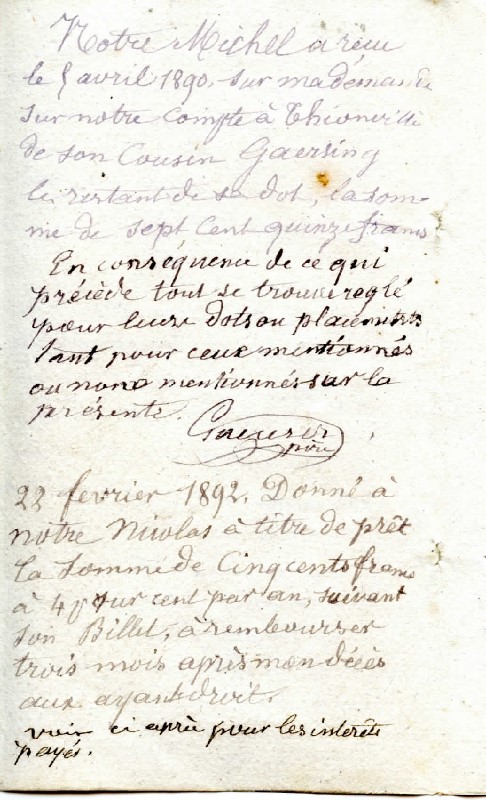 Notre Michel a reçu
le 5 avril 1890, sur ma demande
sur notre Compte à Thionville
de son Cousin Gaersing
le restant de sa dot, la som-
me de sept Cent quinze francs
En conséquence de ce qui
précède tout se trouve reglé
pour leurs dots ou placements
tant pour ceux mentionnés
ou nons mentionnés sur la
présente.
père
22 fevrier 1892, Donné à
notre Nicolas à titre de prêt
la Somme de Cinq cents francs
à 4 p sur cent par an, suivant
son Billet, à rembourser
trois mois après mon décès
aux ayant droit.
voir ci après pour les interêts
payés.